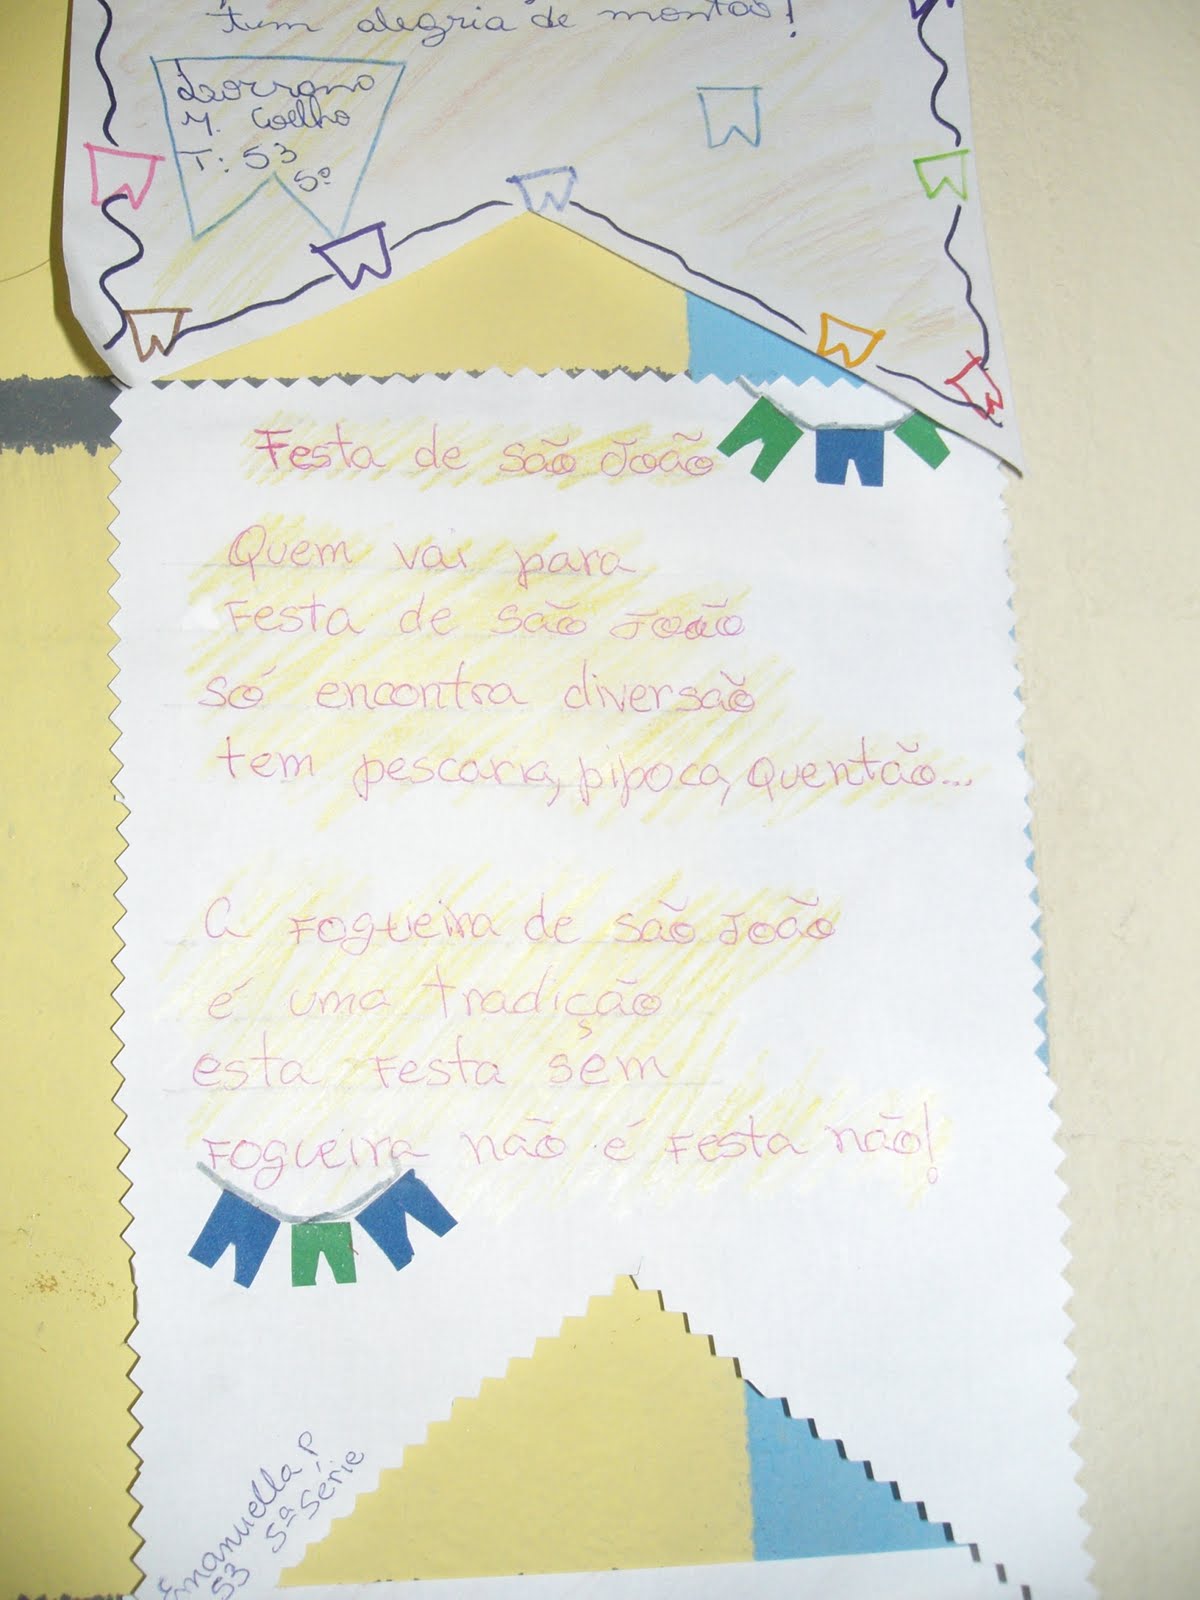 tem alegria de montão!
M. Coelho
T: 53
5º
Festa de são João
Quem vai para
Festa de são João
só encontra diversão
tem pescaria, pipoca, quentão...
A Fogueira de são João
é uma tradição
esta Festa sem
Fogueira não é Festa não!
Emanuella P.
53 5ª série